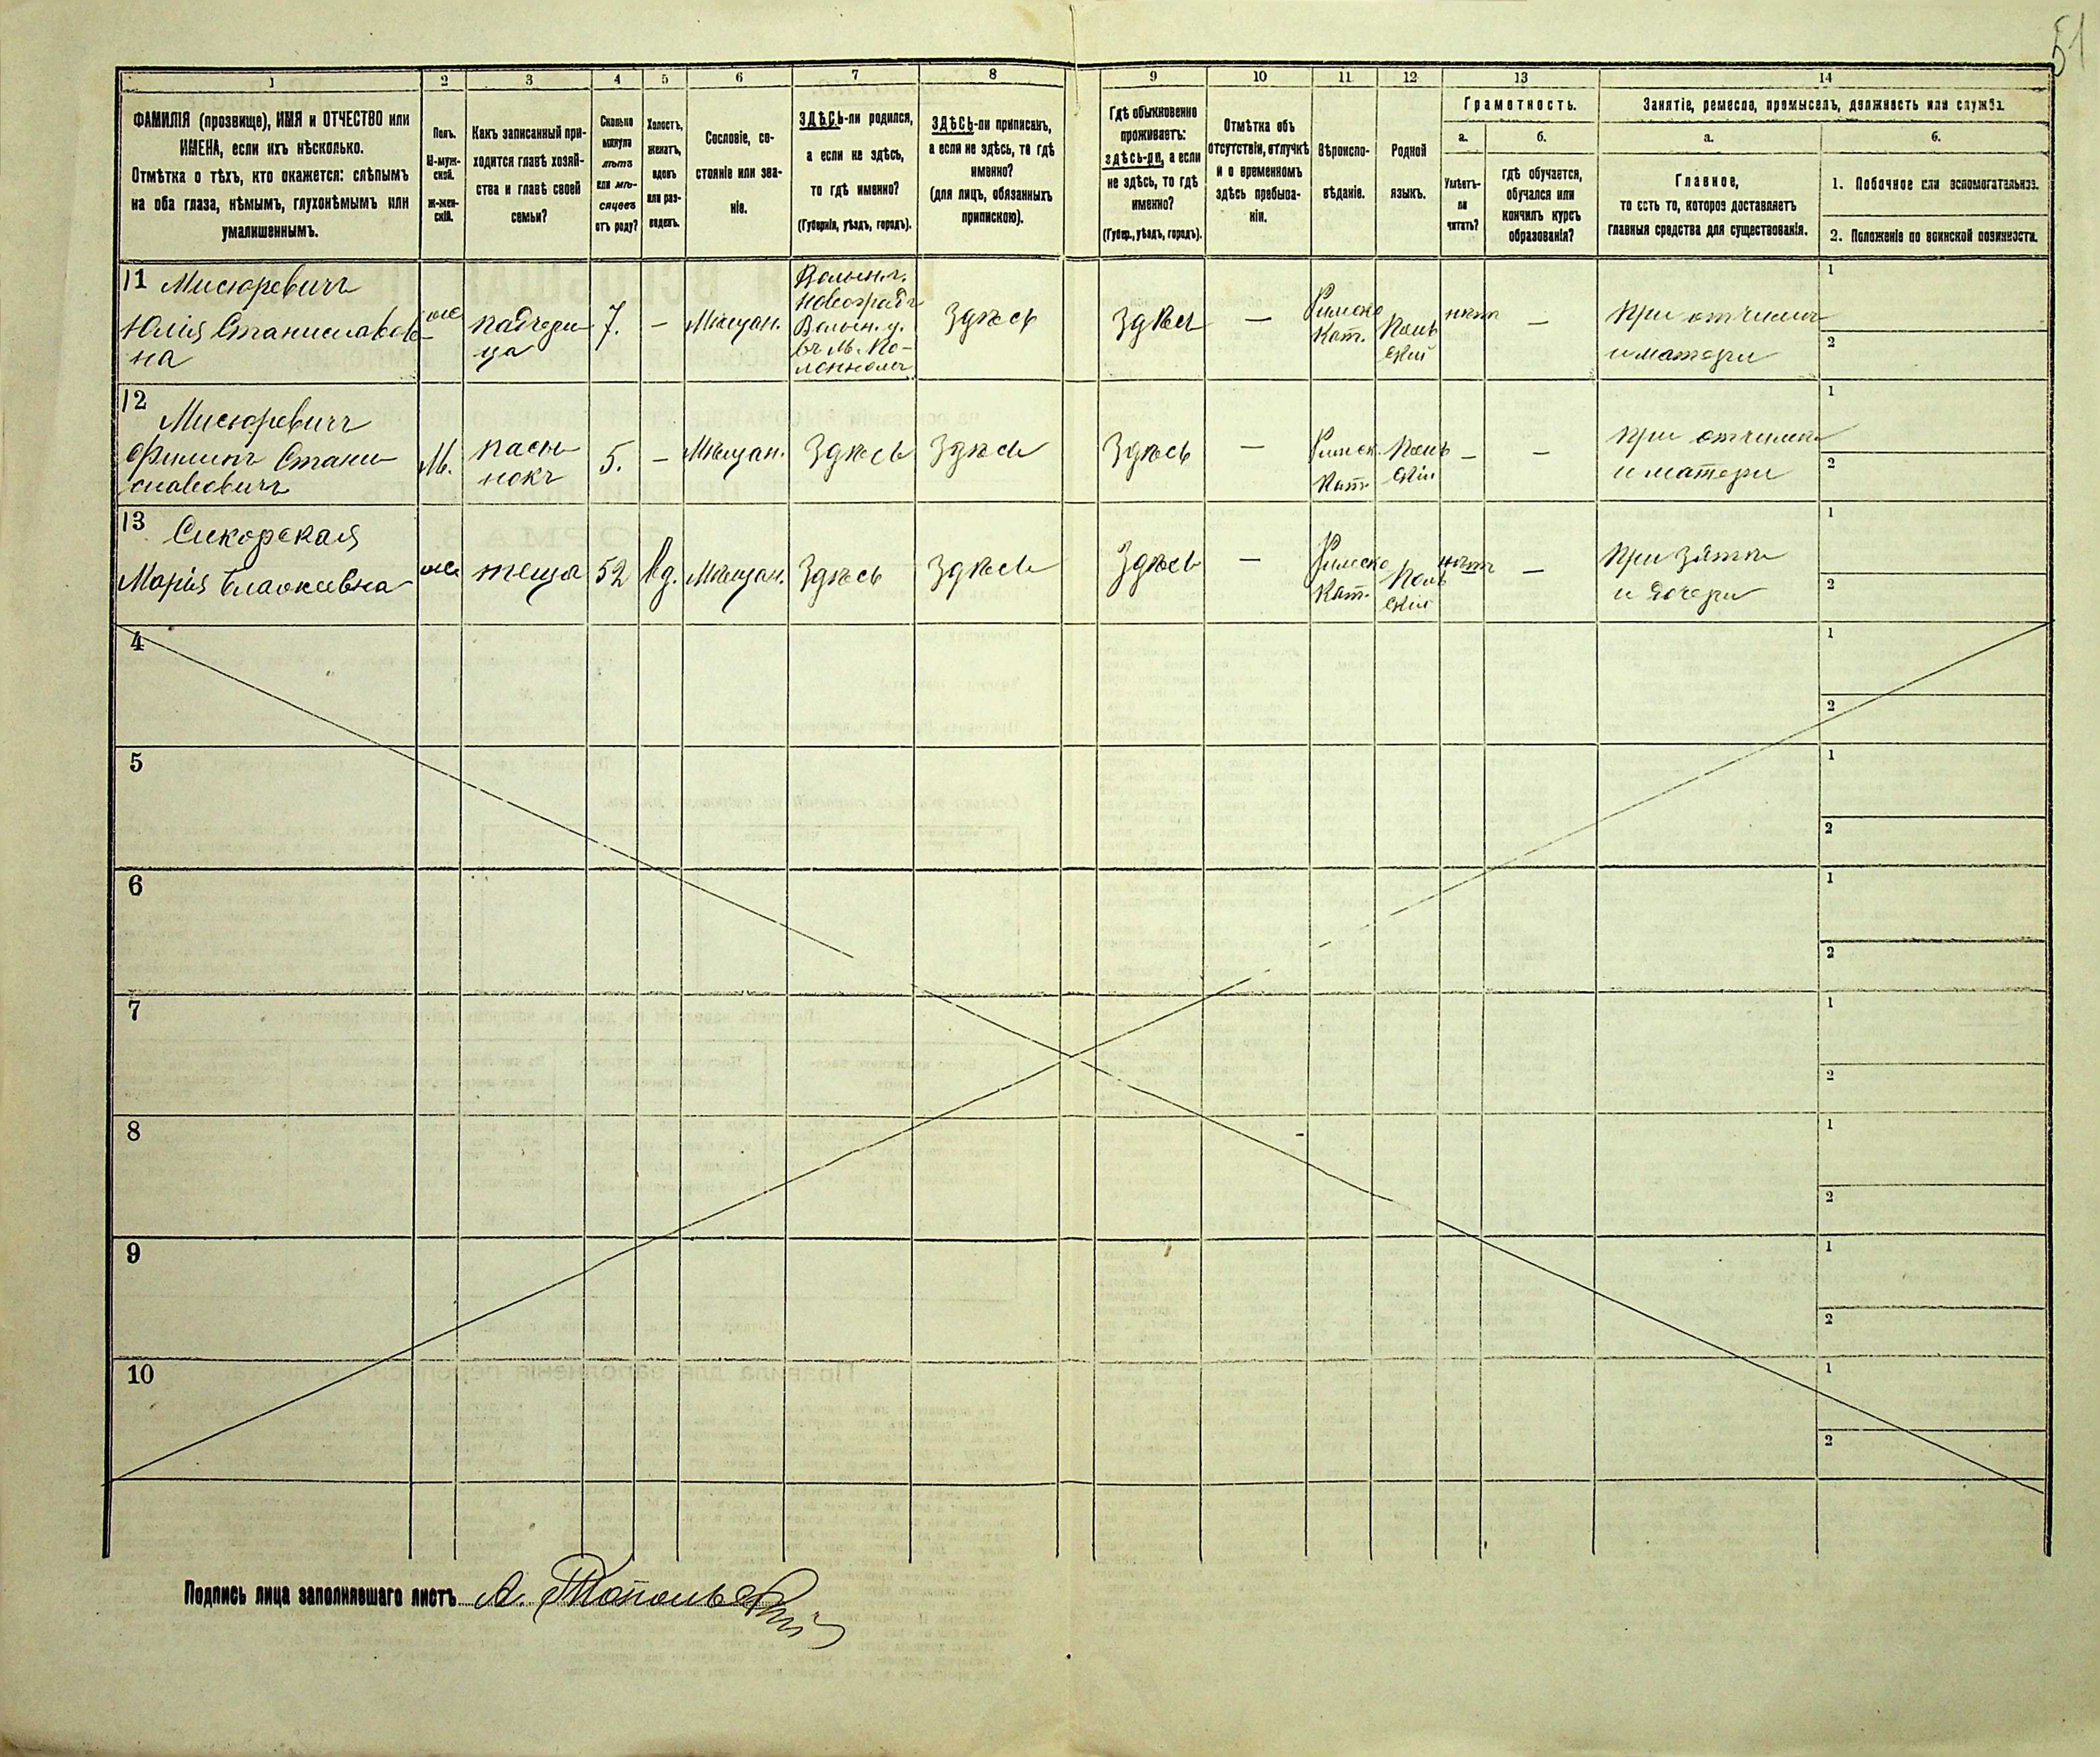 51
1
2
3
4
5
6
7
8
9
10
11
12
13
14
ФАМИЛІЯ (прозвище), ИМЯ и ОТЧЕСТВО или
ИМЕНА, если ихъ нѣсколько.
Отмѣтка о тѣхъ, кто окажется: слѣпымъ
на оба глаза, нѣмымъ, глухонѣмымъ или
умалишеннымъ.
Полъ.
М-муж-
ской.
Ж-жен-
скій.
Какъ записанный при-
ходится главѣ хозяй-
ства и главѣ своей
семьи?
Сколько
минуло
лѣтъ
или мѣ-
сяцевъ
отъ роду?
Холостъ,
женатъ,
вдовъ
или раз-
веденъ.
Сословіе, со-
стояніе или зва-
ніе.
ЗДѢСЬ-ли родился,
а если не здѣсь,
то гдѣ именно?
(Губернія, уѣздъ, городъ).
ЗДѢСЬ-ли приписанъ,
а если не здѣсь, то гдѣ
именно?
(для лицъ, обязанныхъ
припискою).
Гдѣ обыкновенно
проживаетъ:
здѣсь-ли, а если
не здѣсь, то гдѣ
именно?
(Губер., уѣздъ, городъ).
Отмѣтка объ
отсутствіи, отлучкѣ
и о временномъ
здѣсь пребыва-
ніи.
Вѣроиспо-
вѣданіе.
Родной
языкъ.
Грамотность.
а.
Умѣетъ-
ли
читать?
б.
гдѣ обучается,
обучался или
кончилъ курсъ
образованія?
Занятіе, ремесло, промыселъ, должность или служба.
а.
Главное,
то есть то, которое доставляетъ
главныя средства для существованія.
б.
1. Побочное или вспомогательное.
2. Положеніе по воинской повинности.
11 Мисюревичъ
Юлія Станиславов-
на
ж
падчери-
ца
7.
—
Мѣщан.
Волын. г.
Новоградъ
Волын. у.
въ м. По-
Здѣсь
Здѣсь
—
Римско
Кат.
Поль
скій
нѣтъ
—
При отчимѣ
и матери
1
2
12
Мисюревичъ
Филипъ Стани-
славовичъ
М.
пасы-
нокъ
5.
—
Мѣщан.
Здѣсь
Здѣсь
Здѣсь
—
Римск.
Кат.
Поль
скій
—
—
При отчимѣ
и матери
1
2
13
Сикорская
Марія
ж
теща
52
вд.
Мѣщан.
Здѣсь
Здѣсь
Здѣсь
—
Римско
Кат.
Поль
скій
нѣтъ
—
При зятѣ
и дочери
1
2
4
1
2
5
1
2
6
1
2
7
1
2
8
1
2
9
1
2
10
1
2
Подпись лица заполнявшаго листъ А. Топольскій